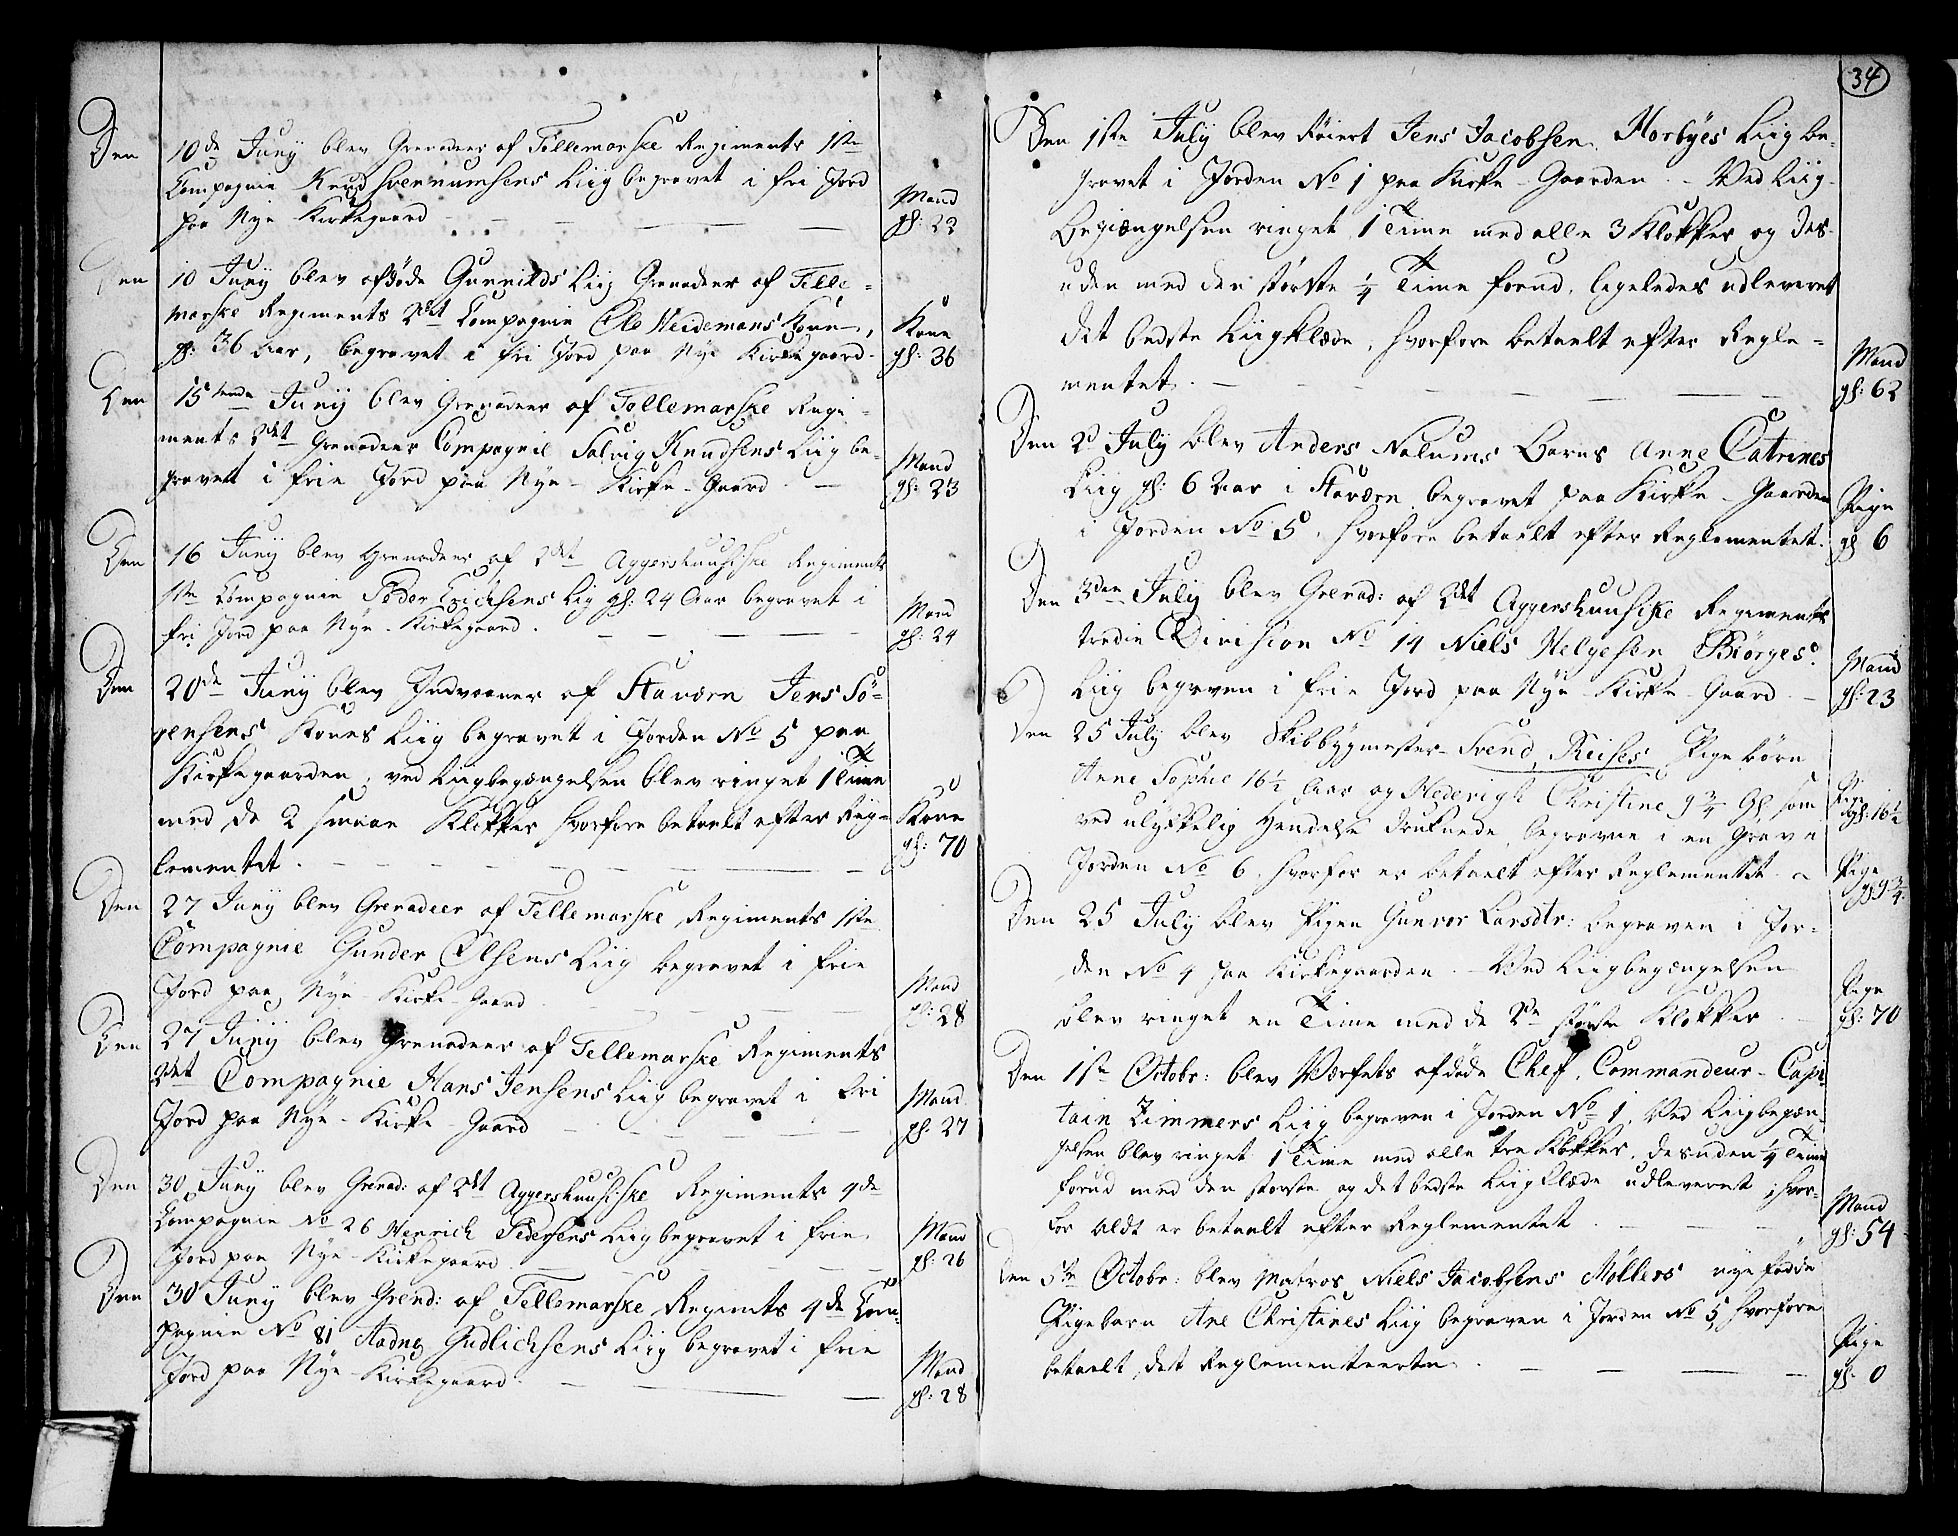 Den 10de Junÿ blev Grenadeer af Tellemarske Regiments 1ste
Compagnie Knud Svennumsens Liig begravet i fri Jord
paa Nye Kirkegaard
Mand
gl: 22
Den 10 Junÿ blev afdöde Gunnilds Liig Grenadeer af Telle-
marske Regiments 2det Compagnie Ole Heidemans Kone,
gl: 36 Aar, begravet i fri Jord paa Nye Kirkegaard.
Kone
gl: 36
Den 15tende Junÿ blev Grenadeer af Tellemarske Regi-
ments 2det Grenadeer Compagnie Salvig Knudsens Liig be-
gravett i frie Jord paa Nye-Kirke-Gaard.
Mand
gl: 23
Den 16 Junÿ blev Grenadeer af 2det Aggershuuske Regiments
1ste Compagnie Peder Erichsens Lig gl: 24 Aar begravet i
fri Jord paa Nye-Kirkegaard.
Mand
gl: 24
Den 20de Junÿ blev Indvaaner af Staværn Jens Sö-
rensens Kones Liig begravet i Jorden No 5 paa
Kirkegaarden, ved Liigbegængelsen blev ringet 1 Time
med de 2 smaae Klokker hvorfore betaelt efter Reg-
lementet.
Kone
gl: 70
Den 27 Junÿ blev Grenadeer af Tellemarske Regiments 1ste
Compagnie Gunder Olsens Liig begravet i frie
Jord paa Nye-Kirke-Gaard
Mand
gl: 28
Den 27 Junÿ blev Grenadeer af Tellemarske Regiments
2det Compagnie Hans Jensens Liig begravet i fri
Jord paa Nye-Kirke-Gaard
Mand
gl: 27
Den 30 Junÿ blev Grenad: af 2det Aggershuuske Regiments 4de
Compagnie No 26 Henrich Pedersens Liig begravet i frie
Jord paa Nye-Kirkegaard.
Mand
gl: 26
Den 30 Junÿ blev Grend: af Tellemarske Regimts 4de Com-
pagnie No 81 Aadne Gudlichsens Liig begravet i frie
Jord paa Nye-Kirkegaard.
Mand
gl: 28
34
Den 1ste Julÿ blev Röiert Jens Jacobsen Horbÿes Liig be-
gravet i Jorden No 1 paa Kirke-Gaarden. Ved Liig-
Begiængelsen ringet 1 Time med alle 3 Klokker og des-
uden med den störste 1/4 Time forud, ligeledes udleveret
det bedste Liigklæde, hvorfore betaelt efter Regle-
mentet.
Mand
gl: 62
Den 2 Julÿ blev Anders Nalums Barns Anne Catrines
Liig gl: 6 Aar i Staværn begravet paa Kirke-Gaarden
i Jorden No 5, hvorfore betaelt efter Reglementet.
Pige
gl 6
Den 3den Julÿ blev Grenad: af 2det Aggershuuske Regiments
tredie Division No 14 Niels Helgesen Biörges:
Liig begrven i frie Jord paa Nye-Kirke-Gaard
Mand
gl: 23
Den 25 Julÿ blev Skibbÿgmester Svend Reises Pige börn
Anne Sophie 16 1/2 Aar og Hederigh Christine 9 3/4 gl, som
ved ulykkelig Hendelse druknede begravne i en Grav i
Jorden No 6, hvorfor er betaelt efter Reglementet.
Pige
gl: 16 1/2
Pige
gl: 9 3/4
Den 25 Julÿ blev Pigen Gunvor Larsdtr: begraven i Jor-
den No 4 paa Kirkegaarden. Ved Liigbegængelsen
blev ringet en Time med de 2de störste Klokker
Pige
gl: 70
Den 1ste Octobr: blev Værfets afdöde Chef, Commandeur-Capi-
tain Zimmers Liig begraven i Jorden No 1, Ved Liigbegæn-
gelsen blev ringet 1 Time med alle tre Klokker, desuden 1/4 Time
forud med den störste og det bedste Liigklæde udleveret; hvor-
for aldt er betaelt efter Reglementet.
Mand
gl: 54
Den 5te Octobr: blev Matros Niels Jacobsens Möllers nye födde
Pigebarn Ane Christines Liig begraven i Jorden No 5, hvorfore
betaelt det Reglementeerte.
Pige
gl: 0